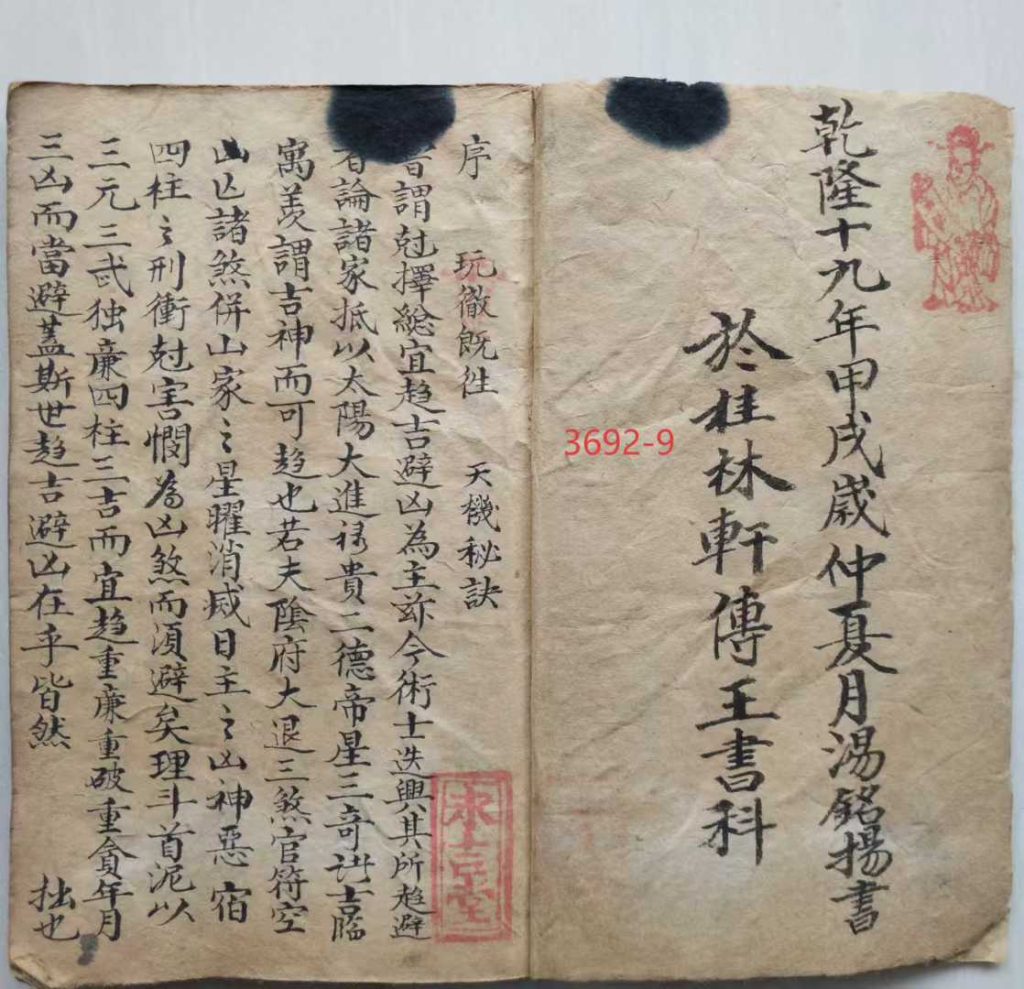 乾隆十九年甲戌歲仲夏月湯銘揚書
於桂林軒傳王書科
3692-9
序 玩徹既徃 天機秘訣
昔謂尅擇總宜趋吉避凶為主玆今術士迭興其所趋避
者論諸家抵以太陽大進祿貴二德帝星三奇吉臨
寓羙謂吉神而可趋也若夫陰府大退三煞官符空
亾諸煞併山家之星曜消烕日主之凶神惡宿
四柱之刑衝尅害憫為凶煞而湏避矣理斗首泥以
三元三武独廉四柱三吉而宜趋重廉重破重貪年月
三凶而當避蓋斯世趋吉避凶在乎皆然 拙也
永吉堂